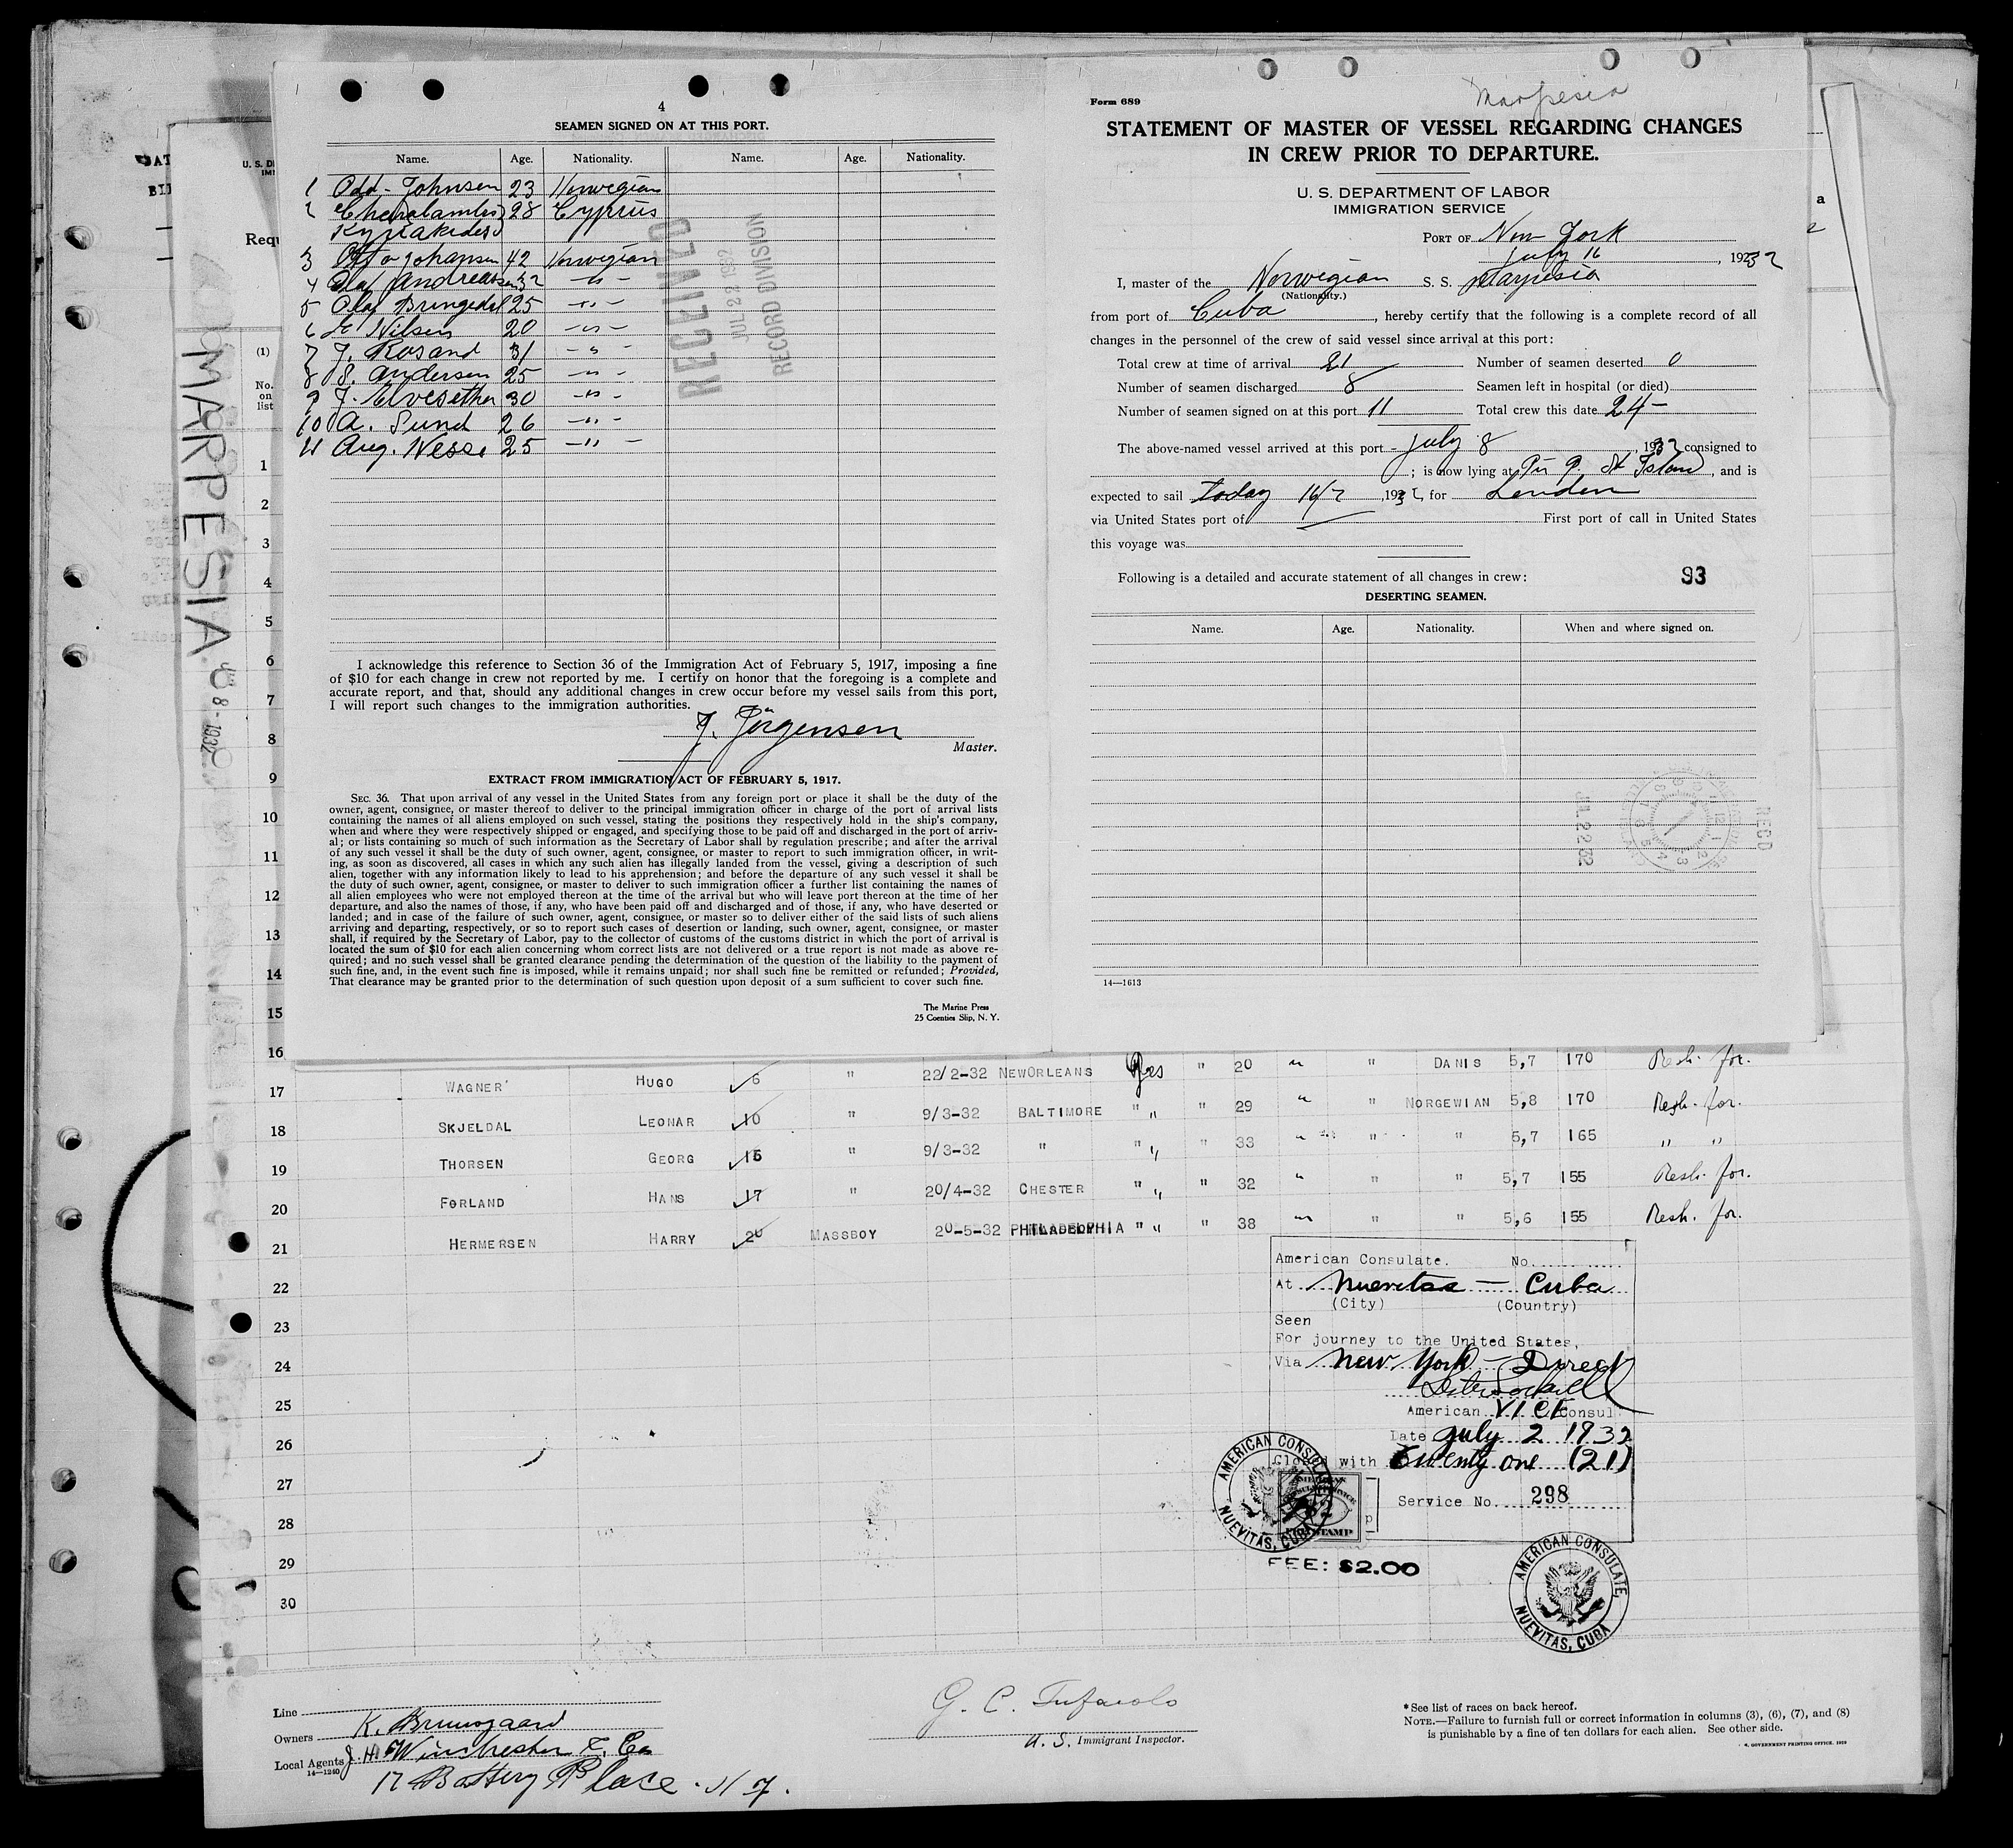 4
SEAMEN SIGNED ON AT THIS PORT.
Name. Age. Nationality. Name. Age. Nationality.
1 Odd Johnsen 23 Norwegian
2 Charalambos 28 Cyprus
Kyriakides
3 Johansen 42 Norwegian
4 Olaf Andreassen 32 -"-
5 Olaf Bringedal 25 -"-
6 Nilsen 20 -"-
7 J. Rosand 31 -"-
8 S. Andersen 25 -"-
9 J. Elvesether 30 -"-
10 A. Sund 26 -"-
11 Aug. Ness. 25 -"-
RECEIVED
JUL 22 1932
RECORD DIVISION
I acknowledge this reference to Section 36 of the Immigration Act of February 5, 1917, imposing a fine
of $10 for each change in crew not reported by me. I certify on honor that the foregoing is a complete and
accurate report, and that, should any additional changes in crew occur before my vessel sails from this port,
I will report such changes to the immigration authorities.
J. Jörgensen
Master.
EXTRACT FROM IMMIGRATION ACT OF FEBRUARY 5, 1917.
SEC. 36. That upon arrival of any vessel in the United States from any foreign port or place it shall be the duty of the
owner, agent, consignee, or master thereof to deliver to the principal immigration officer in charge of the port of arrival lists
containing the names of all aliens employed on such vessel, stating the positions they respectively hold in the ship's company,
when and where they were respectively shipped or engaged, and specifying those to be paid off and discharged in the port of arriv-
al; or lists containing so much of such information as the Secretary of Labor shall by regulation prescribe; and after the arrival
of any such vessel it shall be the duty of such owner, agent, consignee, or master to report to such immigration officer, in writ-
ing, as soon as discovered, all cases in which any such alien has illegally landed from the vessel, giving a description of such
alien, together with any information likely to lead to his apprehension; and before the departure of any such vessel it shall be
the duty of such owner, agent, consignee, or master to deliver to such immigration officer a further list containing the names of
all alien employees who were not employed thereon at the time of the arrival but who will leave port thereon at the time of her
departure, and also the names of those, if any, who have been paid off and discharged and of those, if any, who have deserted or
landed; and in case of the failure of such owner, agent, consignee, or master so to deliver either of the said lists of such aliens
arriving and departing, respectively, or so to report such cases of desertion or landing, such owner, agent, consignee, or master
shall, if required by the Secretary of Labor, pay to the collector of customs of the customs district in which the port of arrival is
located the sum of $10 for each alien concerning whom correct lists are not delivered or a true report is not made as above re-
quired; and no such vessel shall be granted clearance pending the determination of the question of the liability to the payment of
such fine, and, in the event such fine is imposed, while it remains unpaid; nor shall such fine be remitted or refunded; Provided,
That clearance may be granted prior to the determination of such question upon deposit of a sum sufficient to cover such fine.
The Marine Press
25 Coenties Slip, N. Y.
Form 689
Marpesia
STATEMENT OF MASTER OF VESSEL REGARDING CHANGES
IN CREW PRIOR TO DEPARTURE.
U. S. DEPARTMENT OF LABOR
IMMIGRATION SERVICE
PORT OF New York
July 16, 1932
I, master of the Norwegian S. S. Marpesia
(Nationality.)
from port of Cuba, hereby certify that the following is a complete record of all
changes in the personnel of the crew of said vessel since arrival at this port:
Total crew at time of arrival 21 Number of seamen deserted 0
Number of seamen discharged 8 Seamen left in hospital (or died)
Number of seamen signed on at this port 11 Total crew this date 24-
The above-named vessel arrived at this port July 8, 1932 consigned to
; is now lying at Pir 9, St Island, and is
expected to sail today 16/7, 1932, for London
via United States port of First port of call in United States
this voyage was
Following is a detailed and accurate statement of all changes in crew:
93
DESERTING SEAMEN.
Name. Age. Nationality. When and where signed on.
REC'D
JUL 22 32
14—1613
MARPESIA
8-1932
U. S. D
Requ
(1)
No.
on
list
1
2
3
4
5
6
7
8
9
10
11
12
13
14
15
16
17 WAGNER HUGO 6 " 22/2-32 NEWORLEANS yes " 20 " " DANIS 5,7 170 Resh. for.
18 SKJELDAL LEONAR 10 " 9/3-32 BALTIMORE " " " 29 " " NORGEWIAN 5,8 170 Resh. for.
19 THORSEN GEORG 15 " 9/3-32 " " " " 33 " " " 5,7 165 " "
20 FØRLAND HANS 17 " 20/4-32 CHESTER " " " 32 " " " 5,7 155 Resh. for.
21 HERMERSEN HARRY 20 MASSBOY 20-5-32 PHILADELPHIA " " " 38 " " " 5,6 155 Resh. for.
22
23
24
25
26
27
28
29
30
American Consulate. No.
At Nuevitas — Cuba
(City) (Country)
Seen
For journey to the United States,
Via New York - Direct
American VICE Consul
Date July 2 1932
Closed with twenty one (21)
Service No. 298
AMERICAN CONSULATE
NUEVITAS, CUBA
FEE: $2.00
AMERICAN CONSULATE,
NUEVITAS, CUBA
Line
Owners K. Bruusgaard
Local Agents J. H. Winchester & Co
14—1240
17 Battery Place. N Y.
G. C. Tufarolo
U. S. Immigrant Inspector.
* See list of races on back hereof.
NOTE.—Failure to furnish full or correct information in columns (3), (6), (7), and (8)
is punishable by a fine of ten dollars for each alien. See other side.
GOVERNMENT PRINTING OFFICE